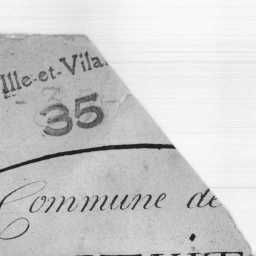 Ille-et-Vila
35
Commune de